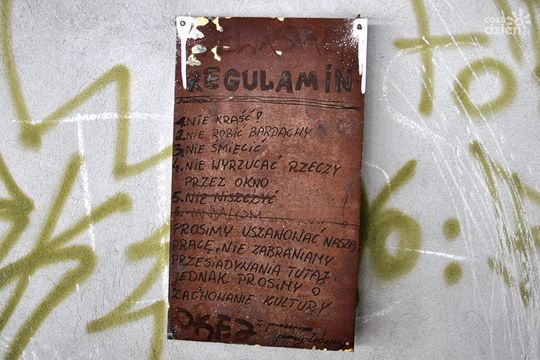 REGULAMIN
1. NIE KRAŚĆ!
2. NIE ROBIĆ BARDACHY
3. NIE ŚMIECIĆ
4. NIE WYRZUCAĆ RZECZY
PRZEZ OKNO
5. NIE NISZCZYĆ
PROSIMY USZANOWAĆ NASZĄ
PRACĘ, NIE ZABRANIAMY
PRZESIADYWANIA TUTAJ
JEDNAK PROSIMY O
ZACHOWANIE KULTURY
dzień